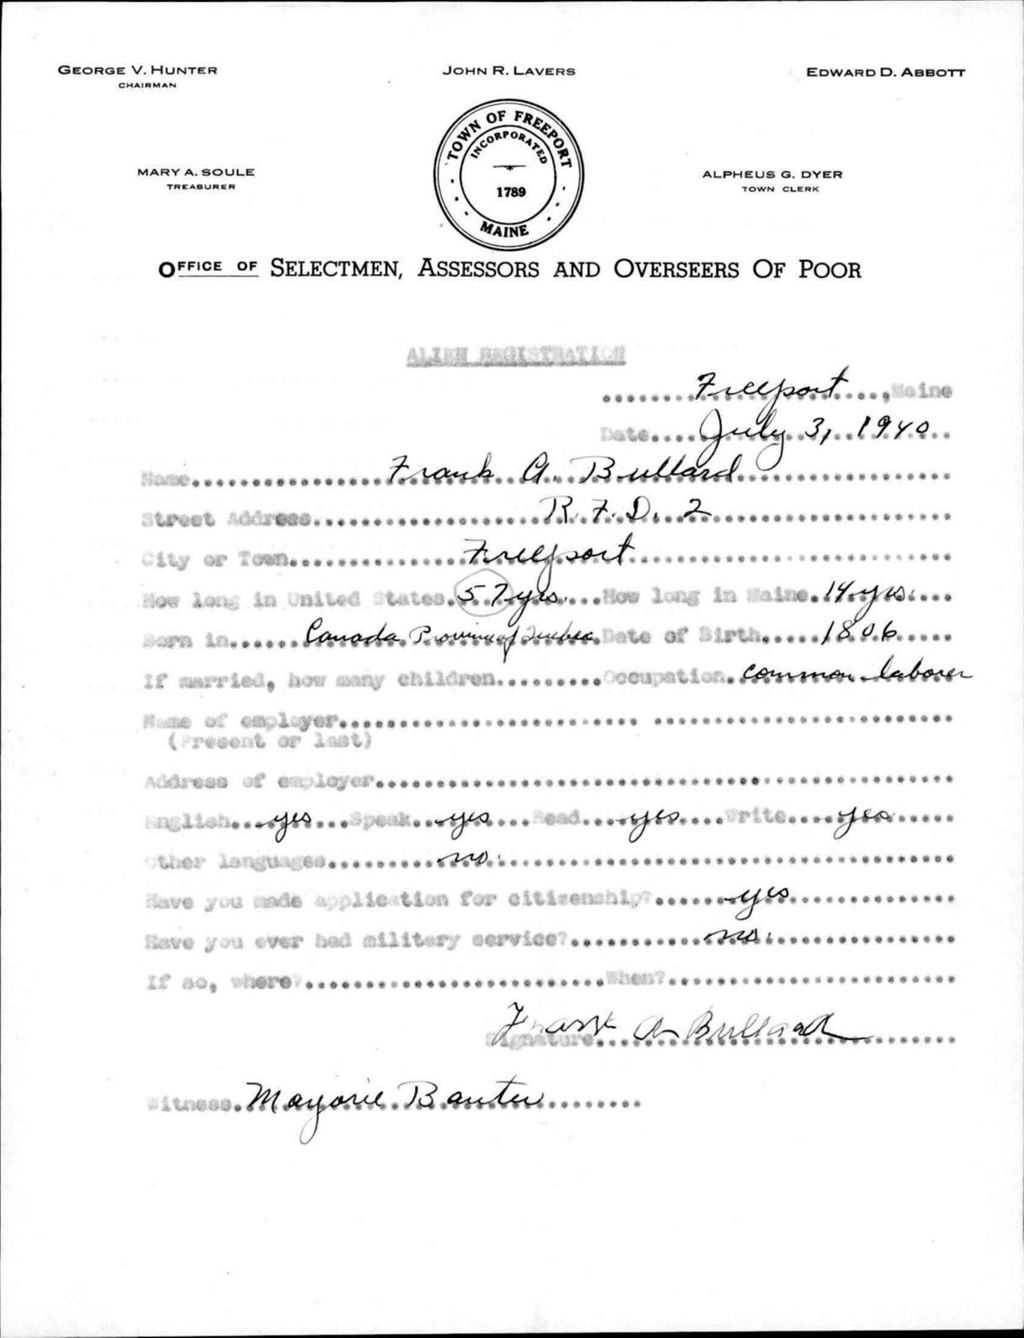 GEORGE V. HUNTER
CHAIRMAN
JOHN R. LAVERS
EDWARD D. ABBOTT
MARY A. SOULE
TREASURER
TOWN OF FREEPORT
INCORPORATED
1789
MAINE
ALPHEUS G. DYER
TOWN CLERK
OFFICE OF SELECTMEN, ASSESSORS AND OVERSEERS OF POOR
ALIEN REGISTRATION
........Freeport....,Maine
Date....July 3, 1940..
Name..................Frank A. Bullard..................
Street Address..................R.F.D. 2..................
City or Town..................Freeport..................
How long in United States.57 yrs....How long in Maine..14 yrs....
Born in......Canada Province of Quebec.Date of Birth.....1806.....
If married, how many children.........Occupation.common laborer
Name of employer....................................
(Present or last)
Address of employer....................................
English...yes...Speak...yes...Read....yes....Write....yes.....
Other languages..........no..................
Have you made application for citizenship?......yes...............
Have you ever had military service?............no................
If so, where?..........................When?......................
Frank A Bullard
Signature..................
Witness.Marjorie Banter.........